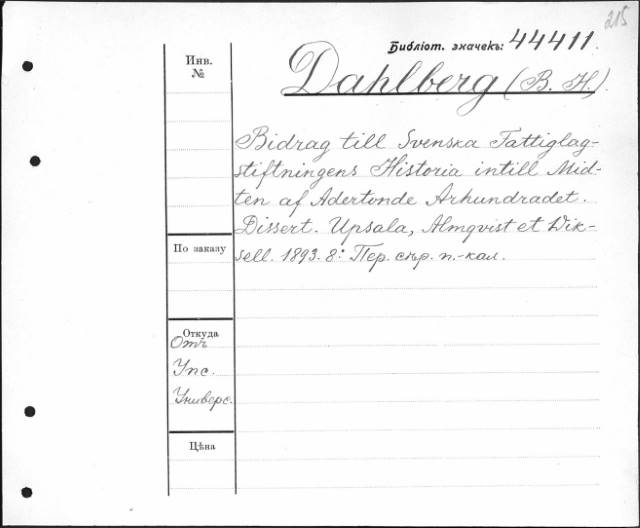 215
Библіот. значекъ: 44411.
Инв.
№
Dahlberg (B. H.).
Bidrag till Svenska Fattiglag-
stiftningens Historia intill Mid-
ten af Adertonde Århundradet.
Dissert. Upsala, Almqvist et Wik-
По заказу
sell. 1893. 8: Пер. сѣр. п.-кал.
Откуда
Отъ
Упс.
Универс.
Цѣна